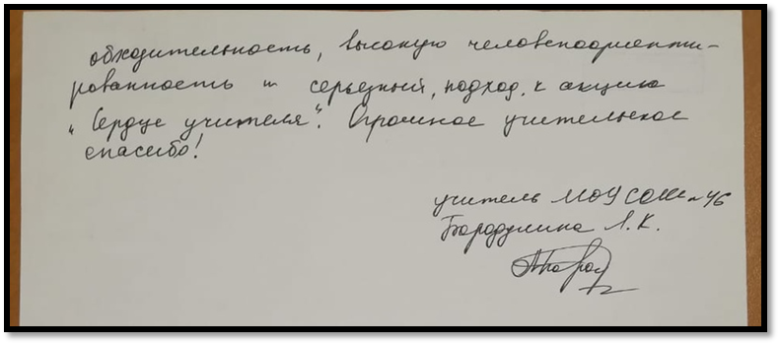 обходительность, высокую человекоориенти-
рованность и серьезный, подход, к акции
„Сердце учителя". Огромное учительское
спасибо!
учитель МОУ СОШ № 46
Бородулина Л.К.